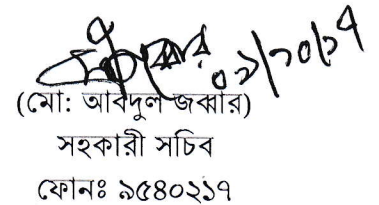 (মো: আবদুল জব্বার)
সহকারী সচিব
ফোনঃ ৯৫৪০২১৭